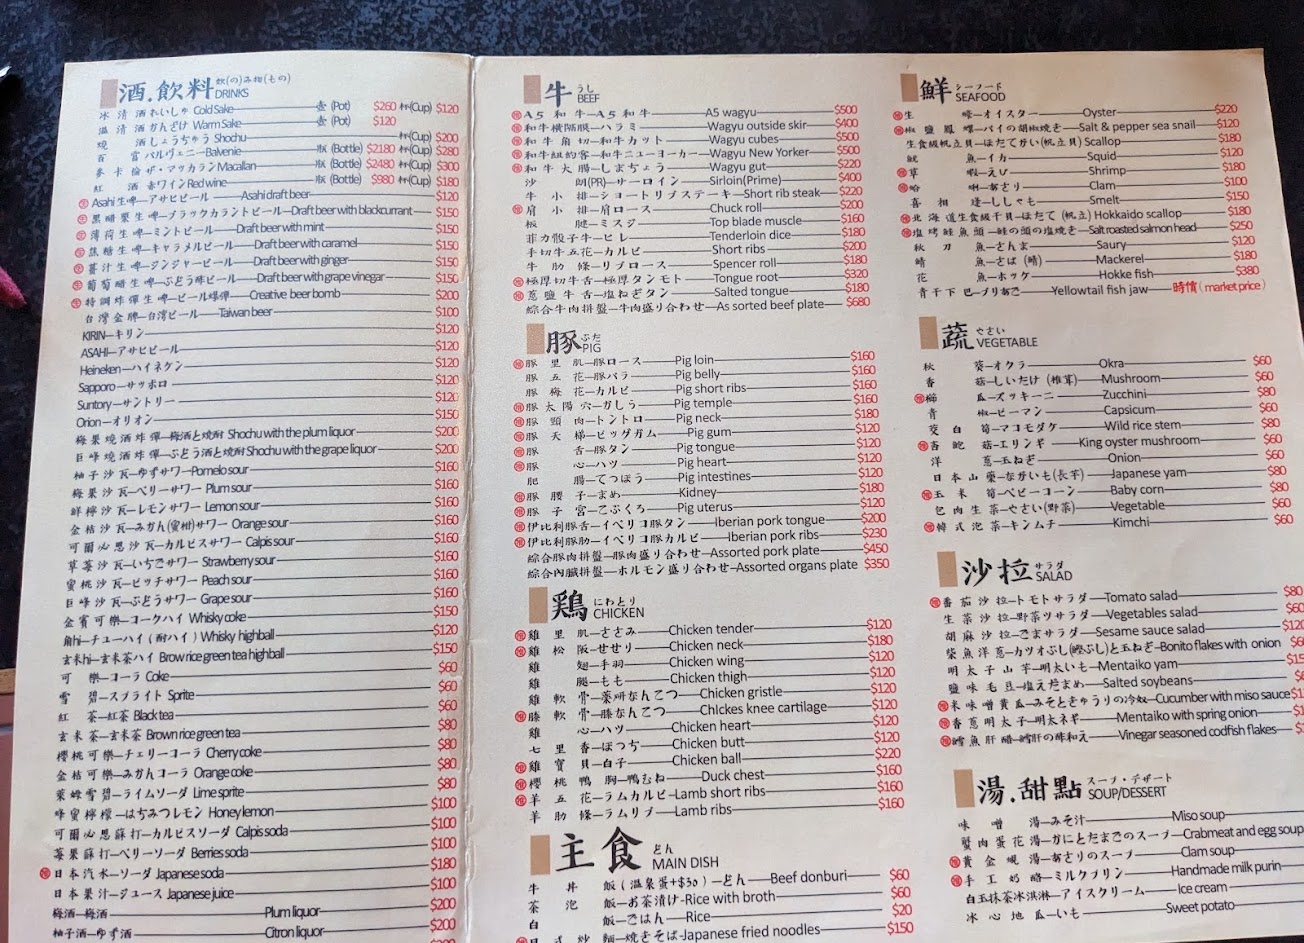 酒.飲料 飲(の)み物(もの)
DRINKS
冰清酒れいしゅ Cold Sake 壺 (Pot) $260 杯(Cup) $120
溫清酒かんざけ Warm Sake 壺 (Pot) $120
燒酒しょうちゅう Shochu 杯(Cup) $200
百富バルヴェニー Balvenie 瓶 (Bottle) $2180 杯(Cup) $280
麥卡倫ザ・マッカラン Macallan 瓶 (Bottle) $2480 杯(Cup) $300
紅酒赤ワイン Red wine 瓶 (Bottle) $980 杯(Cup) $180
Asahi生啤—アサヒビール Asahi draft beer $120
黑醋栗生啤—ブラックカラントビール Draft beer with blackcurrant $150
薄荷生啤—ミントビール Draft beer with mint $150
焦糖生啤—キャラメルビール Draft beer with caramel $150
薑汁生啤—ジンジャービール Draft beer with ginger $150
葡萄醋生啤—ぶどう酢ビール Draft beer with grape vinegar $150
特調炸彈生啤—ビール爆弾 Creative beer bomb $200
台灣金牌—台湾ビール Taiwan beer $100
KIRIN—キリン $120
ASAHI—アサヒビール $120
Heineken—ハイネケン $120
Sapporo—サッポロ $120
Suntory—サントリー $120
Orion—オリオン $150
梅果燒酒炸彈—梅酒と焼酎 Shochu with the plum liquor $200
巨峰燒酒炸彈—ぶどう酒と焼酎 Shochu with the grape liquor $200
柚子沙瓦—ゆずサワー Pomelo sour $160
梅果沙瓦—ベリーサワー Plum sour $160
鮮檸沙瓦—レモンサワー Lemon sour $160
金桔沙瓦—みかん(蜜柑)サワー Orange sour $160
可爾必思沙瓦—カルピスサワー Calpis sour $160
草莓沙瓦—いちごサワー Strawberry sour $160
蜜桃沙瓦—ピッチサワー Peach sour $160
巨峰沙瓦—ぶどうサワー Grape sour $160
金賓可樂—コークハイ Whisky coke $150
角hi—チューハイ(酎ハイ) Whisky highball $120
玄米hi—玄米茶ハイ Brow rice green tea highball $150
可樂—コーラ Coke $60
雪碧—スプライト Sprite $60
紅茶—紅茶 Black tea $60
玄米茶—玄米茶 Brown rice green tea $80
櫻桃可樂—チェリーコーラ Cherry coke $80
金桔可樂—みかんコーラ Orange coke $80
萊姆雪碧—ライムソーダ Lime sprite $80
蜂蜜檸檬—はちみつレモン Honey lemon $100
可爾必思蘇打—カルピスソーダ Calpis soda $100
莓果蘇打—ベリーソーダ Berries soda $100
日本汽水—ソーダ Japanese soda $180
日本果汁—ジュース Japanese juice $100
梅酒—梅酒 Plum liquor $200
柚子酒—ゆず酒 Citron liquor $200
牛 うし
BEEF
A5和牛—A5和牛 A5 wagyu $500
和牛橫隔膜—ハラミ Wagyu outside skir $400
和牛角切—和牛カット Wagyu cubes $500
和牛紐約客—和牛ニューヨーカー Wagyu New Yorker $500
和牛大腸—しまちょう Wagyu gut $220
沙朗(PR)—サーロイン Sirloin(Prime) $400
牛小排—ショートリブステーキ Short rib steak $220
肩小排—肩ロース Chuck roll $200
板腱—ミスジ Top blade muscle $160
菲力骰子牛—ヒレ Tenderloin dice $180
手切牛五花—カルビ Short ribs $200
牛肋條—リブロース Spencer roll $180
極厚切牛舌—極厚タンモト Tongue root $320
蔥鹽牛舌—塩ねぎタン Salted tongue $180
綜合牛肉拼盤—牛肉盛り合わせ As sorted beef plate $680
豚 ぶた
PIG
豚里肌—豚ロース Pig loin $160
豚五花—豚バラ Pig belly $160
豚梅花—カルビ Pig short ribs $160
豚太陽穴—かしら Pig temple $160
豚頸肉—トントロ Pig neck $180
豚天梯—ビッグガム Pig gum $120
豚舌—豚タン Pig tongue $120
豚心—ハツ Pig heart $120
肥腸—てつぼう Pig intestines $120
豚腰子—まめ Kidney $180
豚子宮—こぶくろ Pig uterus $120
伊比利豚舌—イベリコ豚タン Iberian pork tongue $200
伊比利豚肋—イベリコ豚カルビ Iberian pork ribs $230
綜合豚肉拼盤—豚肉盛り合わせ Assorted pork plate $450
綜合內臟拼盤—ホルモン盛り合わせ Assorted organs plate $350
鶏 にわとり
CHICKEN
雞里肌—ささみ Chicken tender $120
雞松阪—せせり Chicken neck $180
雞翅—手羽 Chicken wing $120
雞腿—もも Chicken thigh $120
雞軟骨—薬研なんこつ Chicken gristle $120
膝軟骨—膝なんこつ ChIckes knee cartilage $120
雞心—ハツ Chicken heart $120
七里香—ぼっち Chicken butt $120
雞寶貝—白子 Chicken ball $220
櫻桃鴨胸—鴨むね Duck chest $160
羊五花—ラムカルビ Lamb short ribs $160
羊肋條—ラムリブ Lamb ribs $160
主食 どん
MAIN DISH
牛丼飯(溫泉蛋+$30)—どん Beef donburi $60
茶泡飯—お茶漬け Rice with broth $60
白飯—ごはん Rice $20
日式炒麵—焼きそば Japanese fried noodles $150
鮮 シーフード
SEAFOOD
生蠔—オイスター Oyster $220
椒鹽鳳螺—バイの胡椒焼き Salt & pepper sea snail $120
生食級帆立貝—ほたてがい(帆立貝) Scallop $180
魷魚—イカ Squid $120
草蝦—えび Shrimp $180
蛤蜊—あさり Clam $100
喜相逢—ししゃも Smelt $150
北海道生食級干貝—ほたて(帆立) Hokkaido scallop $180
塩烤鮭魚頭—鮭の頭の塩焼き Salt roasted salmon head $250
秋刀魚—さんま Saury $120
鯖魚—さば(鯖) Mackerel $180
花魚—ホッケ Hokke fish $380
青干下巴—ブリあご Yellowtail fish jaw 時價(market price)
蔬 やさい
VEGETABLE
秋葵—オクラ Okra $60
香菇—しいたけ(椎茸) Mushroom $60
櫛瓜—ズッキーニ Zucchini $80
青椒—ピーマン Capsicum $60
茭白筍—マコモダケ Wild rice stem $80
杏鮑菇—エリンギ King oyster mushroom $60
洋蔥—玉ねぎ Onion $60
日本山藥—ながいも(長芋) Japanese yam $80
玉米筍—ベビーコーン Baby corn $80
包肉生菜—やさい(野菜) Vegetable $60
韓式泡菜—キムチ Kimchi $60
沙拉 サラダ
SALAD
番茄沙拉—トマトサラダ Tomato salad $80
生菜沙拉—野菜ツサラダ Vegetables salad $60
胡麻沙拉—ごまサラダ Sesame sauce salad $120
柴魚洋蔥—カツオぶし(鰹ぶし)と玉ねぎ Bonito flakes with onion
明太子山芋—明太いも Mentaiko yam
鹽味毛豆—塩えだまめ Salted soybeans
味噌黃瓜—みそときゅうりの冷奴 Cucumber with miso sauce
香蔥明太子—明太ネギ Mentaiko with spring onion
鱈魚肝醋—鱈肝の酢和え Vinegar seasoned codfish flakes
湯.甜點 スープ・デザート
SOUP/DESSERT
味噌湯—みそ汁 Miso soup
蟹肉蛋花湯—かにとたまごのスープ Crabmeat and egg soup
黃金蜆湯—あさりのスープ Clam soup
手工奶酪—ミルクプリン Handmade milk purin
白玉抹茶冰淇淋—アイスクリーム Ice cream
冰心地瓜—いも Sweet potato